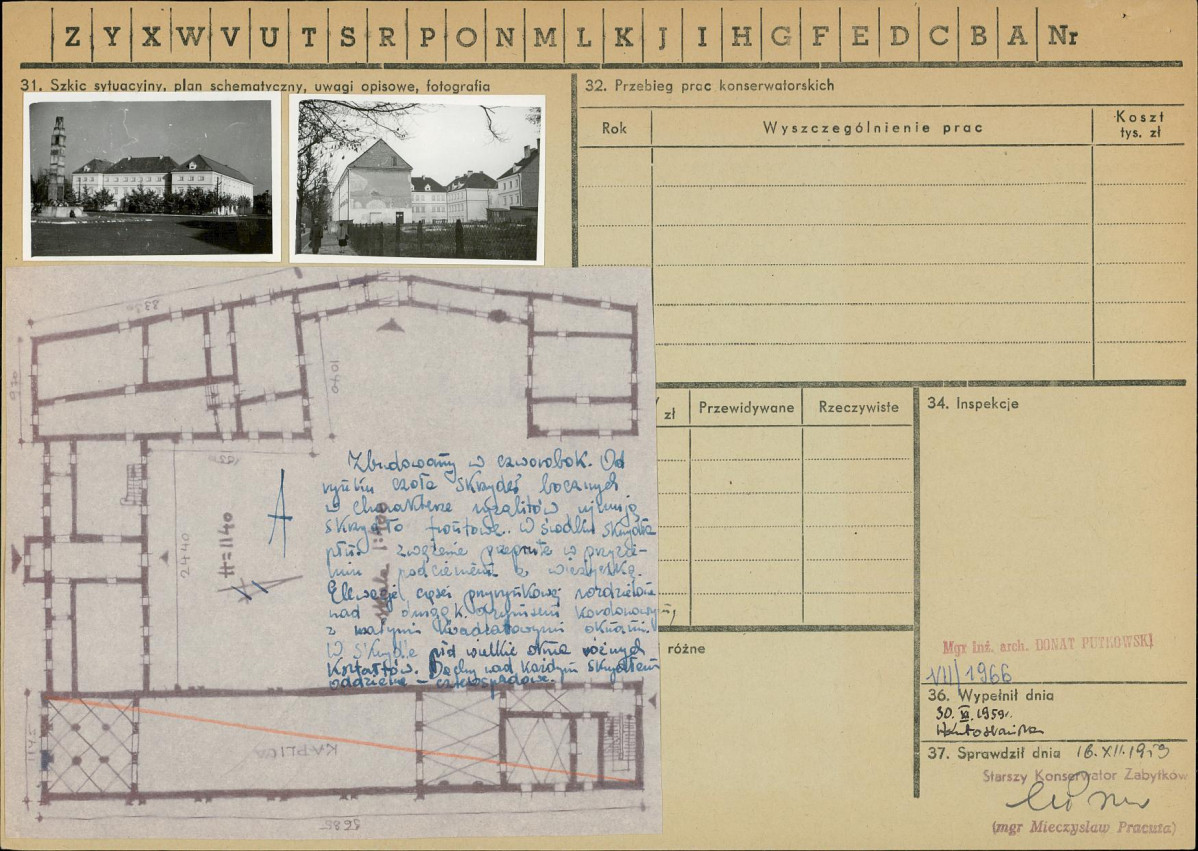 Z Y X W V U T S R P O N M L K J I H G F E D C B A Nr
31. Szkic sytuacyjny, plan schematyczny, uwagi opisowe, fotografia
32. Przebieg prac konserwatorskich
Rok
Wyszczególnienie prac
Koszt
tys. zł
zł
Przewidywane
Rzeczywiste
34. Inspekcje
A
2440
H=1140
1040
KAPLICA
5685
Skala 1:400
Zbudowany w czworobok. Od
rynku czoła skrzydeł bocznych
w charakterze ryzalitów ujmują
skrzydło frontowe. W środku skrzydła
zwężenie w przyzie-
miu podcieniem z wieżyczką.
Elewacje części przyrynkowej rozdzielone
nad gzymsem kordonowym,
z małymi kwadratowymi oknami.
W skrzydle wielkie okna różnych
kształtów. Dachy nad każdym skrzydłem
oddzielne – czterospadowe.
różne
Mgr inż. arch. DONAT PUTKOWSKI
VII/1966
36. Wypełnił dnia
30. XI. 1959r.
37. Sprawdził dnia 16.XII.1959
Starszy Konserwator Zabytków
(mgr Mieczysław Pracuta)